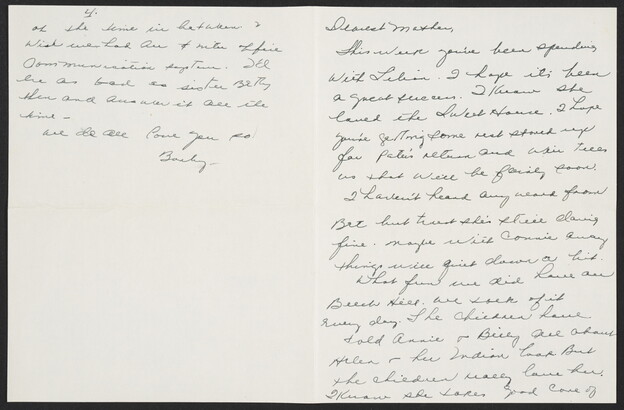 4.
of the time in between &
wish we had an & inter office
communication system. I'll
be as bad as sister Betty
then and answer it all the
time –
We do all love you so
Barby –
Dearest Mother,
This week you've been spending
with Lilian. I hope it's been
a great success. I know she
loved the Guest House. I hope
you're getting some rest stored up
for Pete's return and
us that will be fairly soon.
I haven't heard any word from
Bet but trust she's still doing
fine. Maybe with Connie away
things will quiet down a bit.
What fun we did have on
Beech Hill. We speak of it
every day. The children have
told Annie & Billy all about
Helen & her Indian look But
the children really love her.
I know she takes good care of